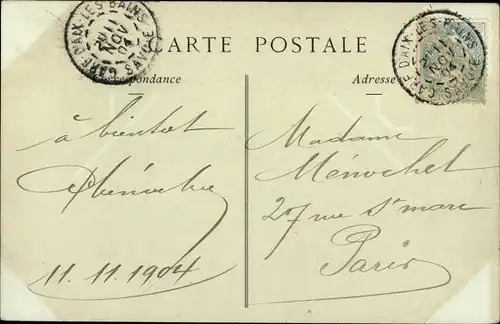 GARE D'AIX-LES-BAINS
11
NOV
04
SAVOIE
CARTE POSTALE
GARE D'AIX-LES-BAINS
11
NOV
04
SAVOIE
Correspondance
Adresse
à bientôt
11.11.1904
Madame
Ménochet
27 rue St marc
Paris